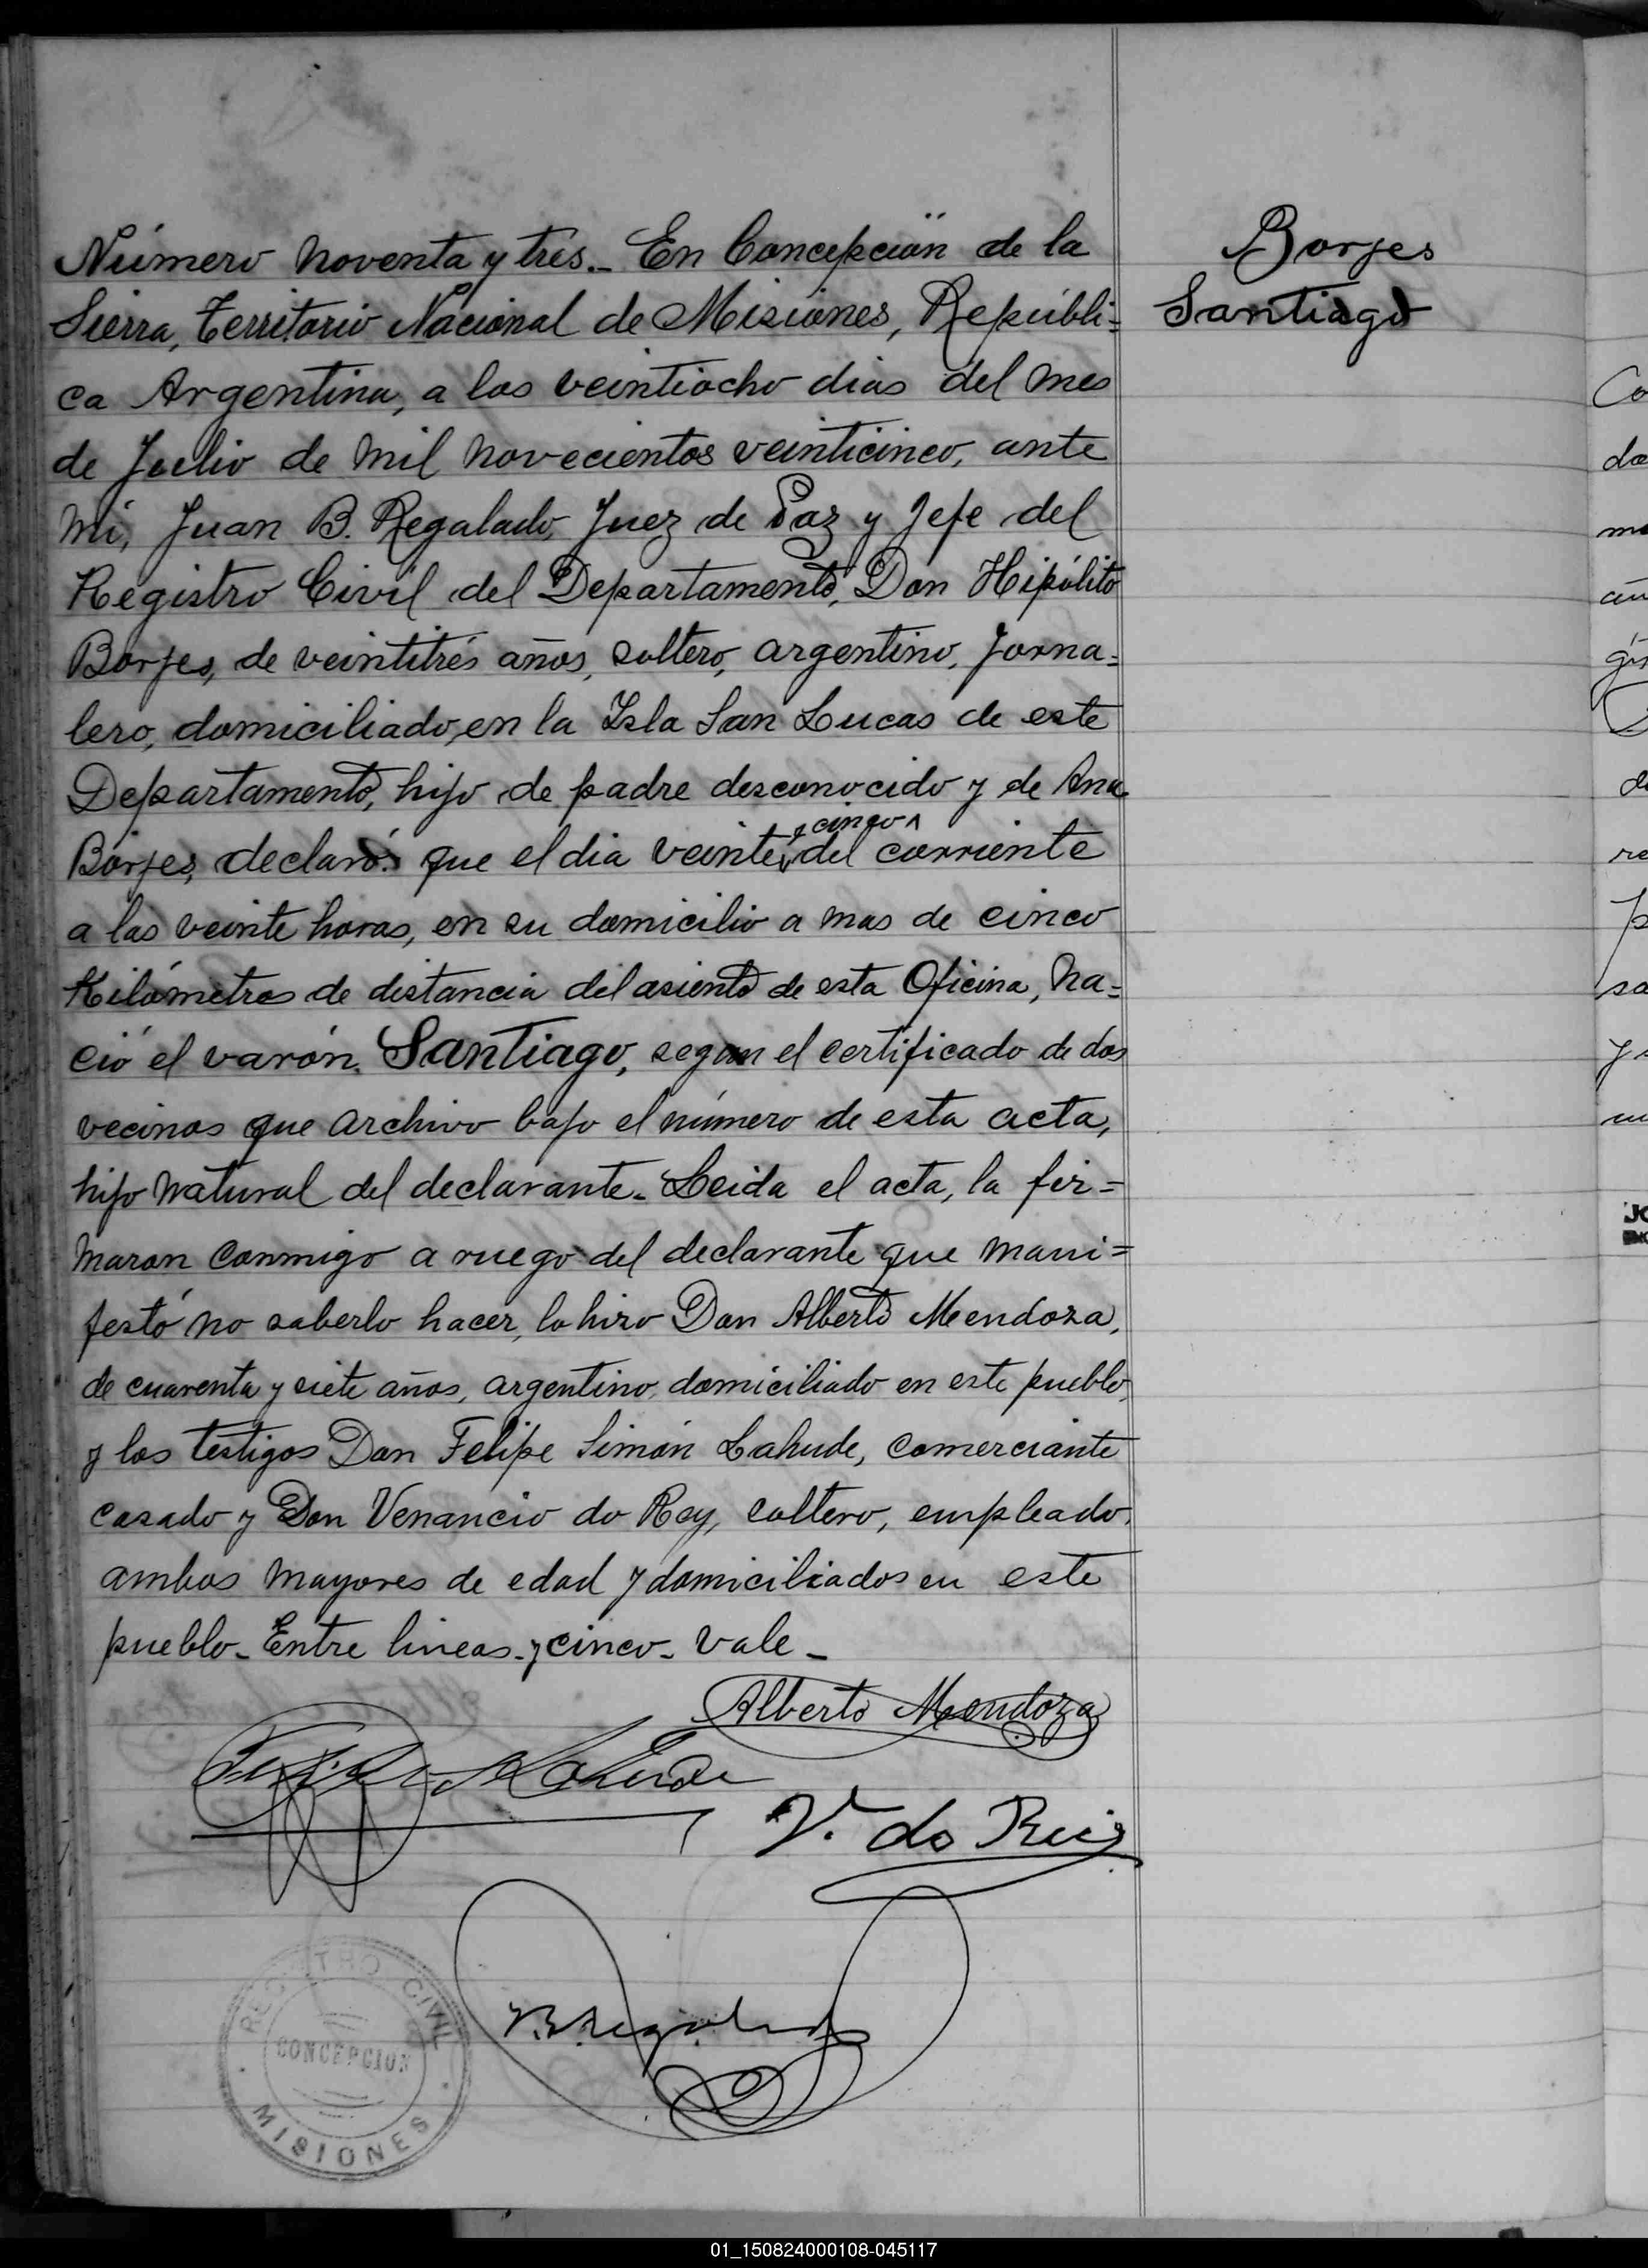 Número noventa y tres._ En Concepción de la
Sierra, Territorio Nacional de Misiones, Repúbli=
ca Argentina, a los veintiocho dias del mes
de Julio de mil novecientos veinticinco, ante
mi, Juan B. Regalado, Juez de Paz y Jefe del
Registro Civil del Departamento, Don Hipólito
Borjes, de veintitrés años, soltero, argentino, jorna=
lero, domiciliado, en la Isla San Lucas de este
Departamento, hijo de padre desconocido y de Ana
Borjes, declaró: que el dia veinte y cinco del corriente
a las veinte horas, en su domicilio a mas de cinco
Kilómetros de distancia del asiento de esta Oficina, na=
ció el varón, Santiago, segun el certificado de dos
vecinos que archivo bajo el número de esta acta,
hijo natural del declarante. Leida el acta, la fir=
maron conmigo a ruego del declarante que mani=
festó no saberlo hacer, lo hizo Don Alberto Mendoza,
de cuarenta y siete años, argentino, domiciliado en este pueblo,
y los testigos Don Felipe Simón Lahude, comerciante
casado y Don Venancio do Rey, soltero, empleado,
ambos mayores de edad y domiciliados en este
pueblo_ Entre lineas_ y cinco_ Vale_
Alberto Mendoza
Lahude
V. do Reis
REGISTRO CIVIL
CONCEPCION
MISIONES
Borjes
Santiago
Co
da
01_150824000108-045117